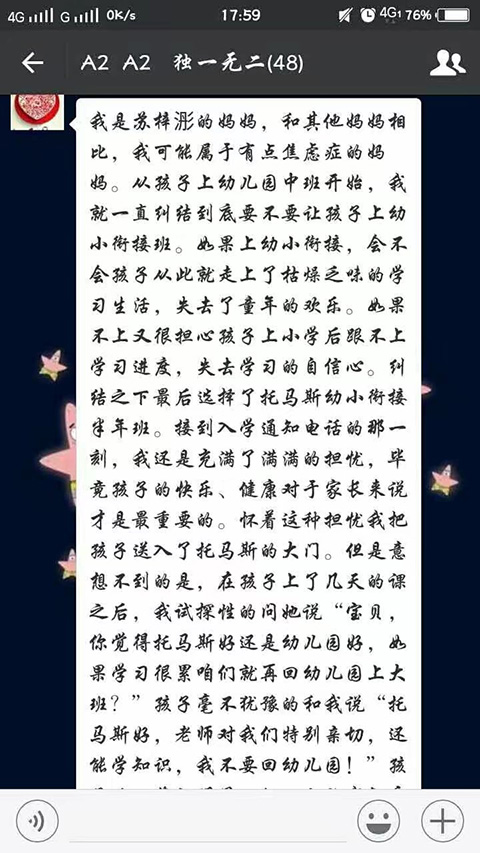 4G G 0K/s 17:59 4G1 76%
A2 A2 独一无二(48)
我是苏梓浵的妈妈，和其他妈妈相
比，我可能属于有点焦虑症的妈
妈。从孩子上幼儿园中班开始，我
就一直纠结到底要不要让孩子上幼
小衔接班。如果上幼小衔接，会不
会孩子从此就走上了枯燥乏味的学
习生活，失去了童年的欢乐。如果
不上又很担心孩子上小学后跟不上
学习进度，失去学习的自信心。纠
结之下最后选择了托马斯幼小衔接
半年班。接到入学通知电话的那一
刻，我还是充满了满满的担忧，毕
竟孩子的快乐、健康对于家长来说
才是最重要的。怀着这种担忧我把
孩子送入了托马斯的大门。但是意
想不到的是，在孩子上了几天的课
之后，我试探性的问她说“宝贝，
你觉得托马斯好还是幼儿园好，如
果学习很累咱们就再回幼儿园上大
班？”孩子毫不犹豫的和我说“托
马斯好，老师对我们特别亲切，还
能学知识，我不要回幼儿园！”孩